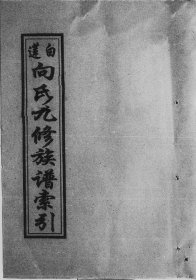 白莲
向氏九修族谱索引